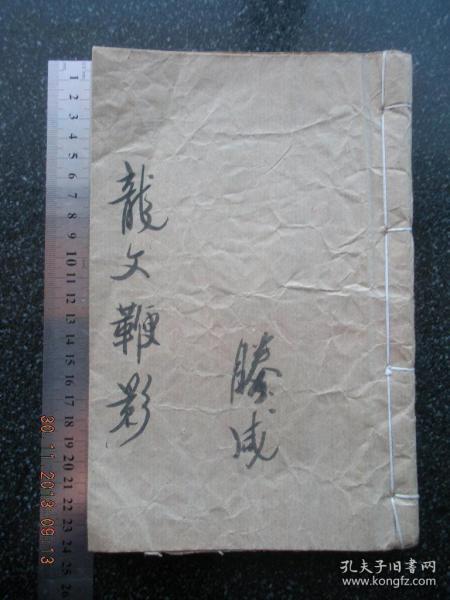 龍文鞭影
勝成
1 2 3 4 5 6 7 8 9 10 11 12 13 14 15 16 17 18 19 20 21 22 23 24 25 26
30.11.2013 09:13
孔夫子旧书网
www.kongfz.com